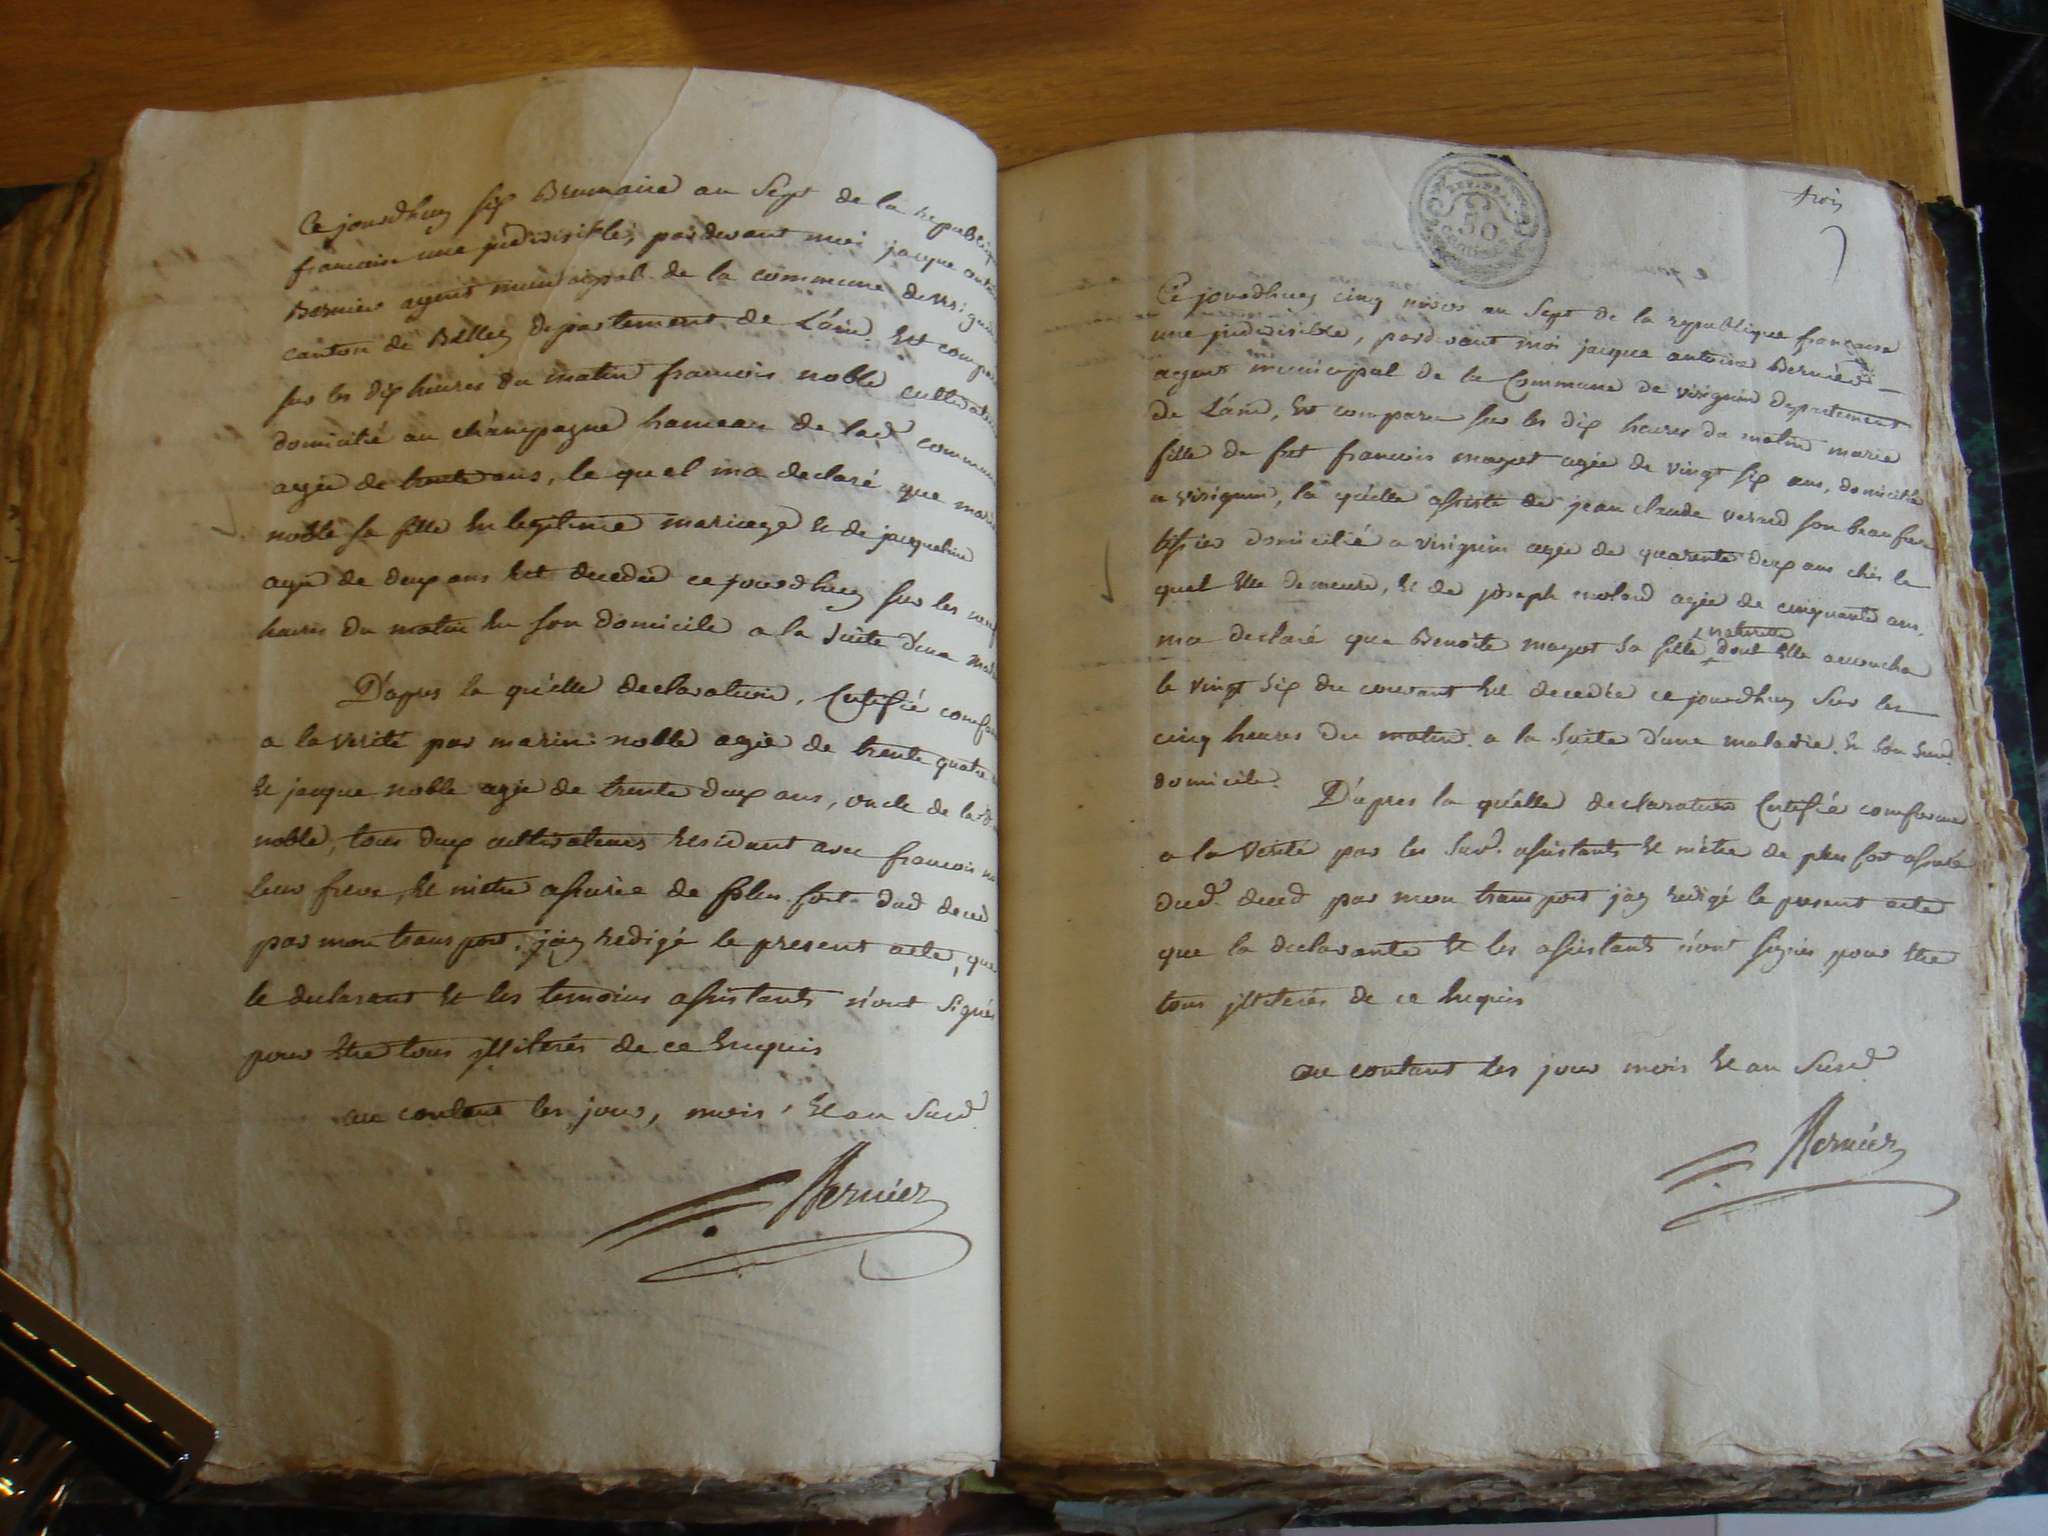 Ce jourdhuy six Brumaire an sept de la republique
francaise une jndivisible, pardevant moi jacque antoi
Bernier agent municipal de la commune de virignin
canton de Belley departement de L'ain. Est compar
sur les dix heures du matin francois noble cultivateur
domicilié au champagne hameau de lad commune
agée de trente ans, le quel ma declaré que marie
noble sa fille En legitime mariage & de jacqueline
agée de deux ans Est decedée ce jourdhuy sur les neuf
heures du matin En son domicile a la suite d'une mala
D'apres la quelle declaration, Certifié confor
a la verité par marin noble agée de trente quatre
& jacque noble agée de trente deux ans, oncle de lad
noble, tous deux cultivateurs residant avec francois no
leur frere, & m'etre assurée de plus fort dud deced
par mon transport, j'ay redigé le present acte, que
le declarant & les temoins assistants n'ont signés
pour Etre tous jlliterés de ce Enquis
au contant les jour, mois, & an Susd
Bernier
trois
50
Ce jourdhuy cinq nivos an sept de la republique francaise
une jndivisible, pardevant moi jacque antoine Bernier
agent municipal de la Commune de virignin departement
de L'ain, Est comparu sur les dix heures du matin marie
fille de fut francois mayot agée de vingt six ans, domicilié
a virignin, la quelle assisté de jean claude verard son beaufrere
tissier domicilié a virignin agée de quarente deux ans chés le
quel Elle demeure, & de joseph molard agée de cinquante ans,
naturelle
ma declaré que Benoite mayot sa fille dont Elle accoucha
le vingt six du courant Est decedée ce jourdhuy sur les
cinq heures du matin. a la suite d'une maladie. En son susd
domicile.
D'apres la quelle declaration Certifié conforme
a la verité par les susd. assistants & m'étre de plus fort assuré
dud. deced par mon transport j'ay redigé le present acte
que la declarante & les assistants n'ont signés pour Etre
tous jlliterés de ce Enquis
au contant les jour mois & an Susd
Bernier